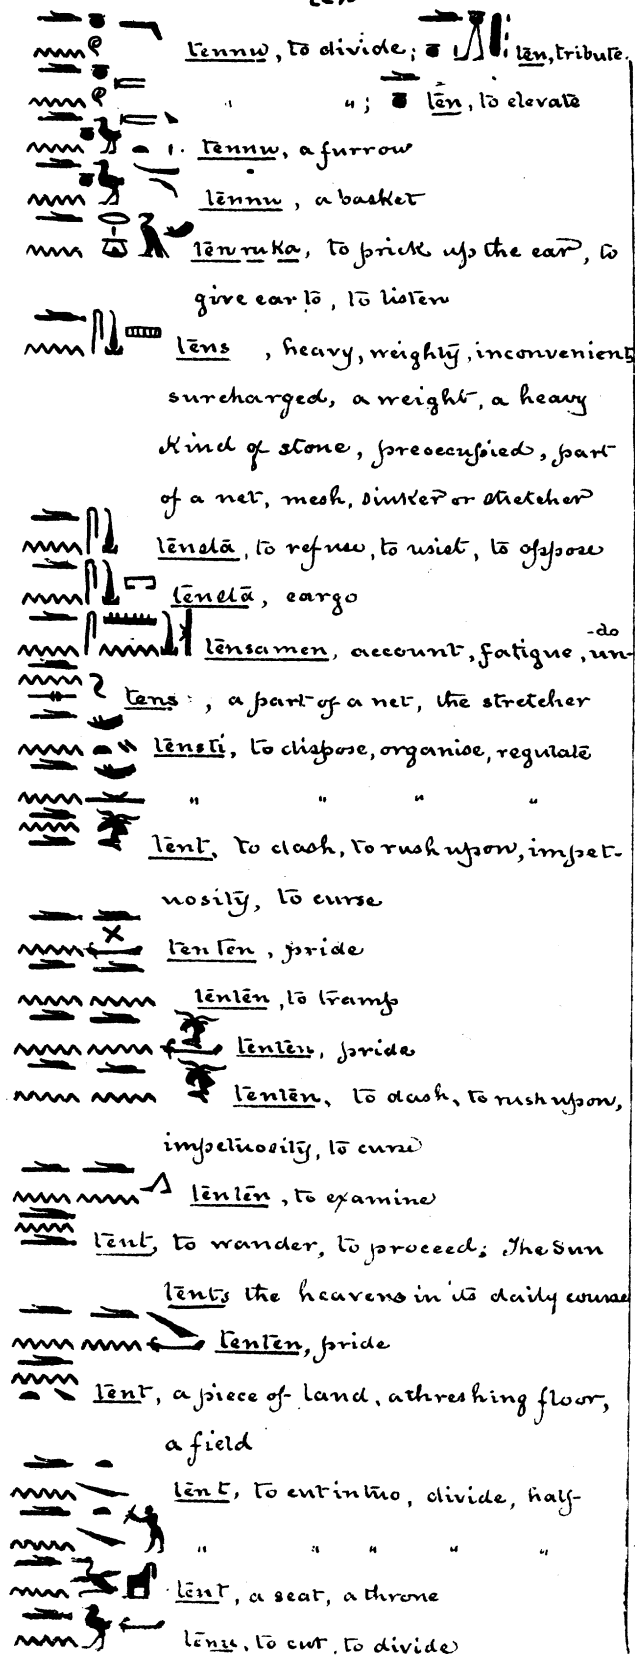 tennu, to divide; ten, tribute.
" "; ten, to elevate
tennu, a furrow
tennu, a basket
ten ru ka, to prick up the ear, to
give ear to, to listen
tens, heavy, weighty, inconvenient
surcharged, a weight, a heavy
kind of stone, preoccupied, part
of a net, mesh, sinker or stretcher
to refuse, to resist, to oppose
cargo
tensamen, account, fatigue, un-
-do
tens, a part of a net, the stretcher
tensti, to dispose, organise, regulate
" " " "
tent, to dash, to rush upon, impet-
uosity, to curse
tenten, pride
tenten, to tramp
tenten, pride
tenten, to dash, to rush upon,
impetuosity, to curse
tenten, to examine
tent, to wander, to proceed; The Sun
tents the heavens in its daily course
tenten, pride
tent, a piece of land, a threshing floor,
a field
tent, to cut in two, divide, half-
" " " " "
tent, a seat, a throne
tenu, to cut, to divide